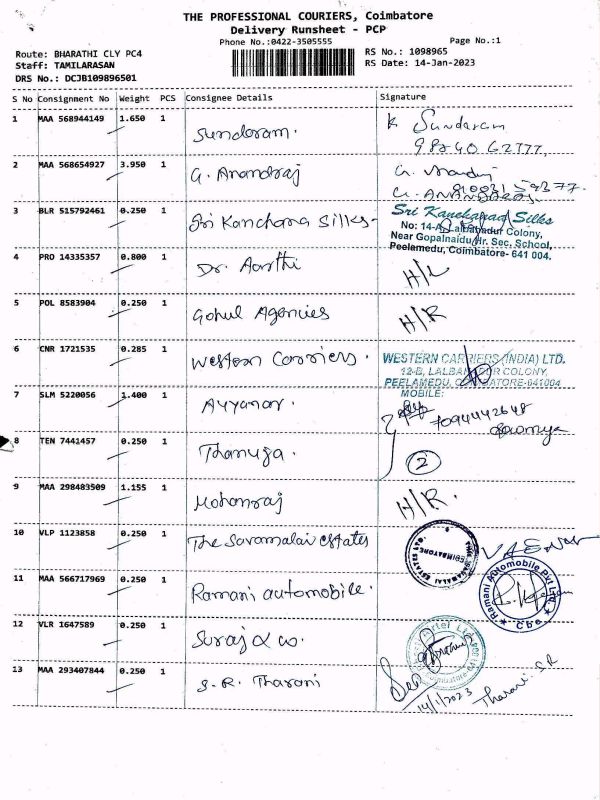 THE PROFESSIONAL COURIERS, Coimbatore
Delivery Runsheet - PCP
Phone No.:0422-3505555 Page No.:1
Route: BHARATHI CLY PC4 RS No.: 1098965
Staff: TAMILARASAN RS Date: 14-Jan-2023
DRS No.: DCJB109896501
S No Consignment No Weight PCS Consignee Details Signature
1 MAA 568944149 1.650 1 Sundaram. K Sundaram
2 MAA 568654927 3.950 1 G. Anandraj
3 BLR 515792461 0.250 1 Sri Kanchana Silks- Sri Kanchana Silks
No: 14-A, Lalbahadur Colony,
Near Gopalnaidu Hr. Sec, School,
Peelamedu, Coimbatore- 641 004.
4 PRO 14335357 0.800 1 Dr. Aarthi H/L
5 POL 8583904 0.250 1 Gohul Agencies H/R
6 CNR 1721535 0.285 1 Western Carriers. WESTERN CARRIERS (INDIA) LTD.
12-B, LALBAHADUR COLONY,
PEELAMEDU, COIMBATORE-641004
MOBILE:
7 SLM 5220056 1.400 1 Ayyanar. 7094442648
8 TEN 7441457 0.250 1 Thanuja. 2
9 MAA 298483509 1.155 1 Mohanraj H/R.
10 VLP 1123858 0.250 1 The Savamalai estates COIMBATORE
11 MAA 566717969 0.250 1 Ramani automobile. Ramani Automobile Pvt Ltd
Cbe
12 VLR 1647589 0.250 1 Suraj & co.
13 MAA 293407844 0.250 1 S. R. Tharani Tharani S.R
14/1/2023